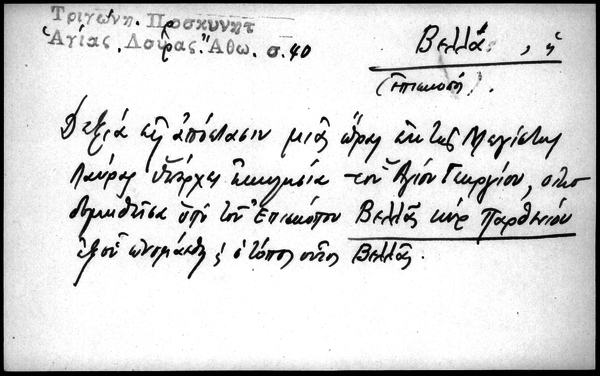 Τριγώνη. Προσκυνητ
Ἁγίας. Λαύρας. Ἄθω. σ. 40
Βελλᾶ, ἡ
(Ἐπισκοπή).
Δεξιά εἰς ἀπόστασιν μιᾶς ὥρας ἐκ τῆς Μεγίστης
Λαύρας ὑπάρχει ἐκκλησία τοῦ Ἁγίου Γεωργίου,
δομηθεῖσα ὑπό τοῦ Ἐπισκόπου Βελλᾶς κύρ Παρθενίου
ἐξ οὗ ὠνομάσθη ὁ τόπος οὗτος Βελλᾶς.